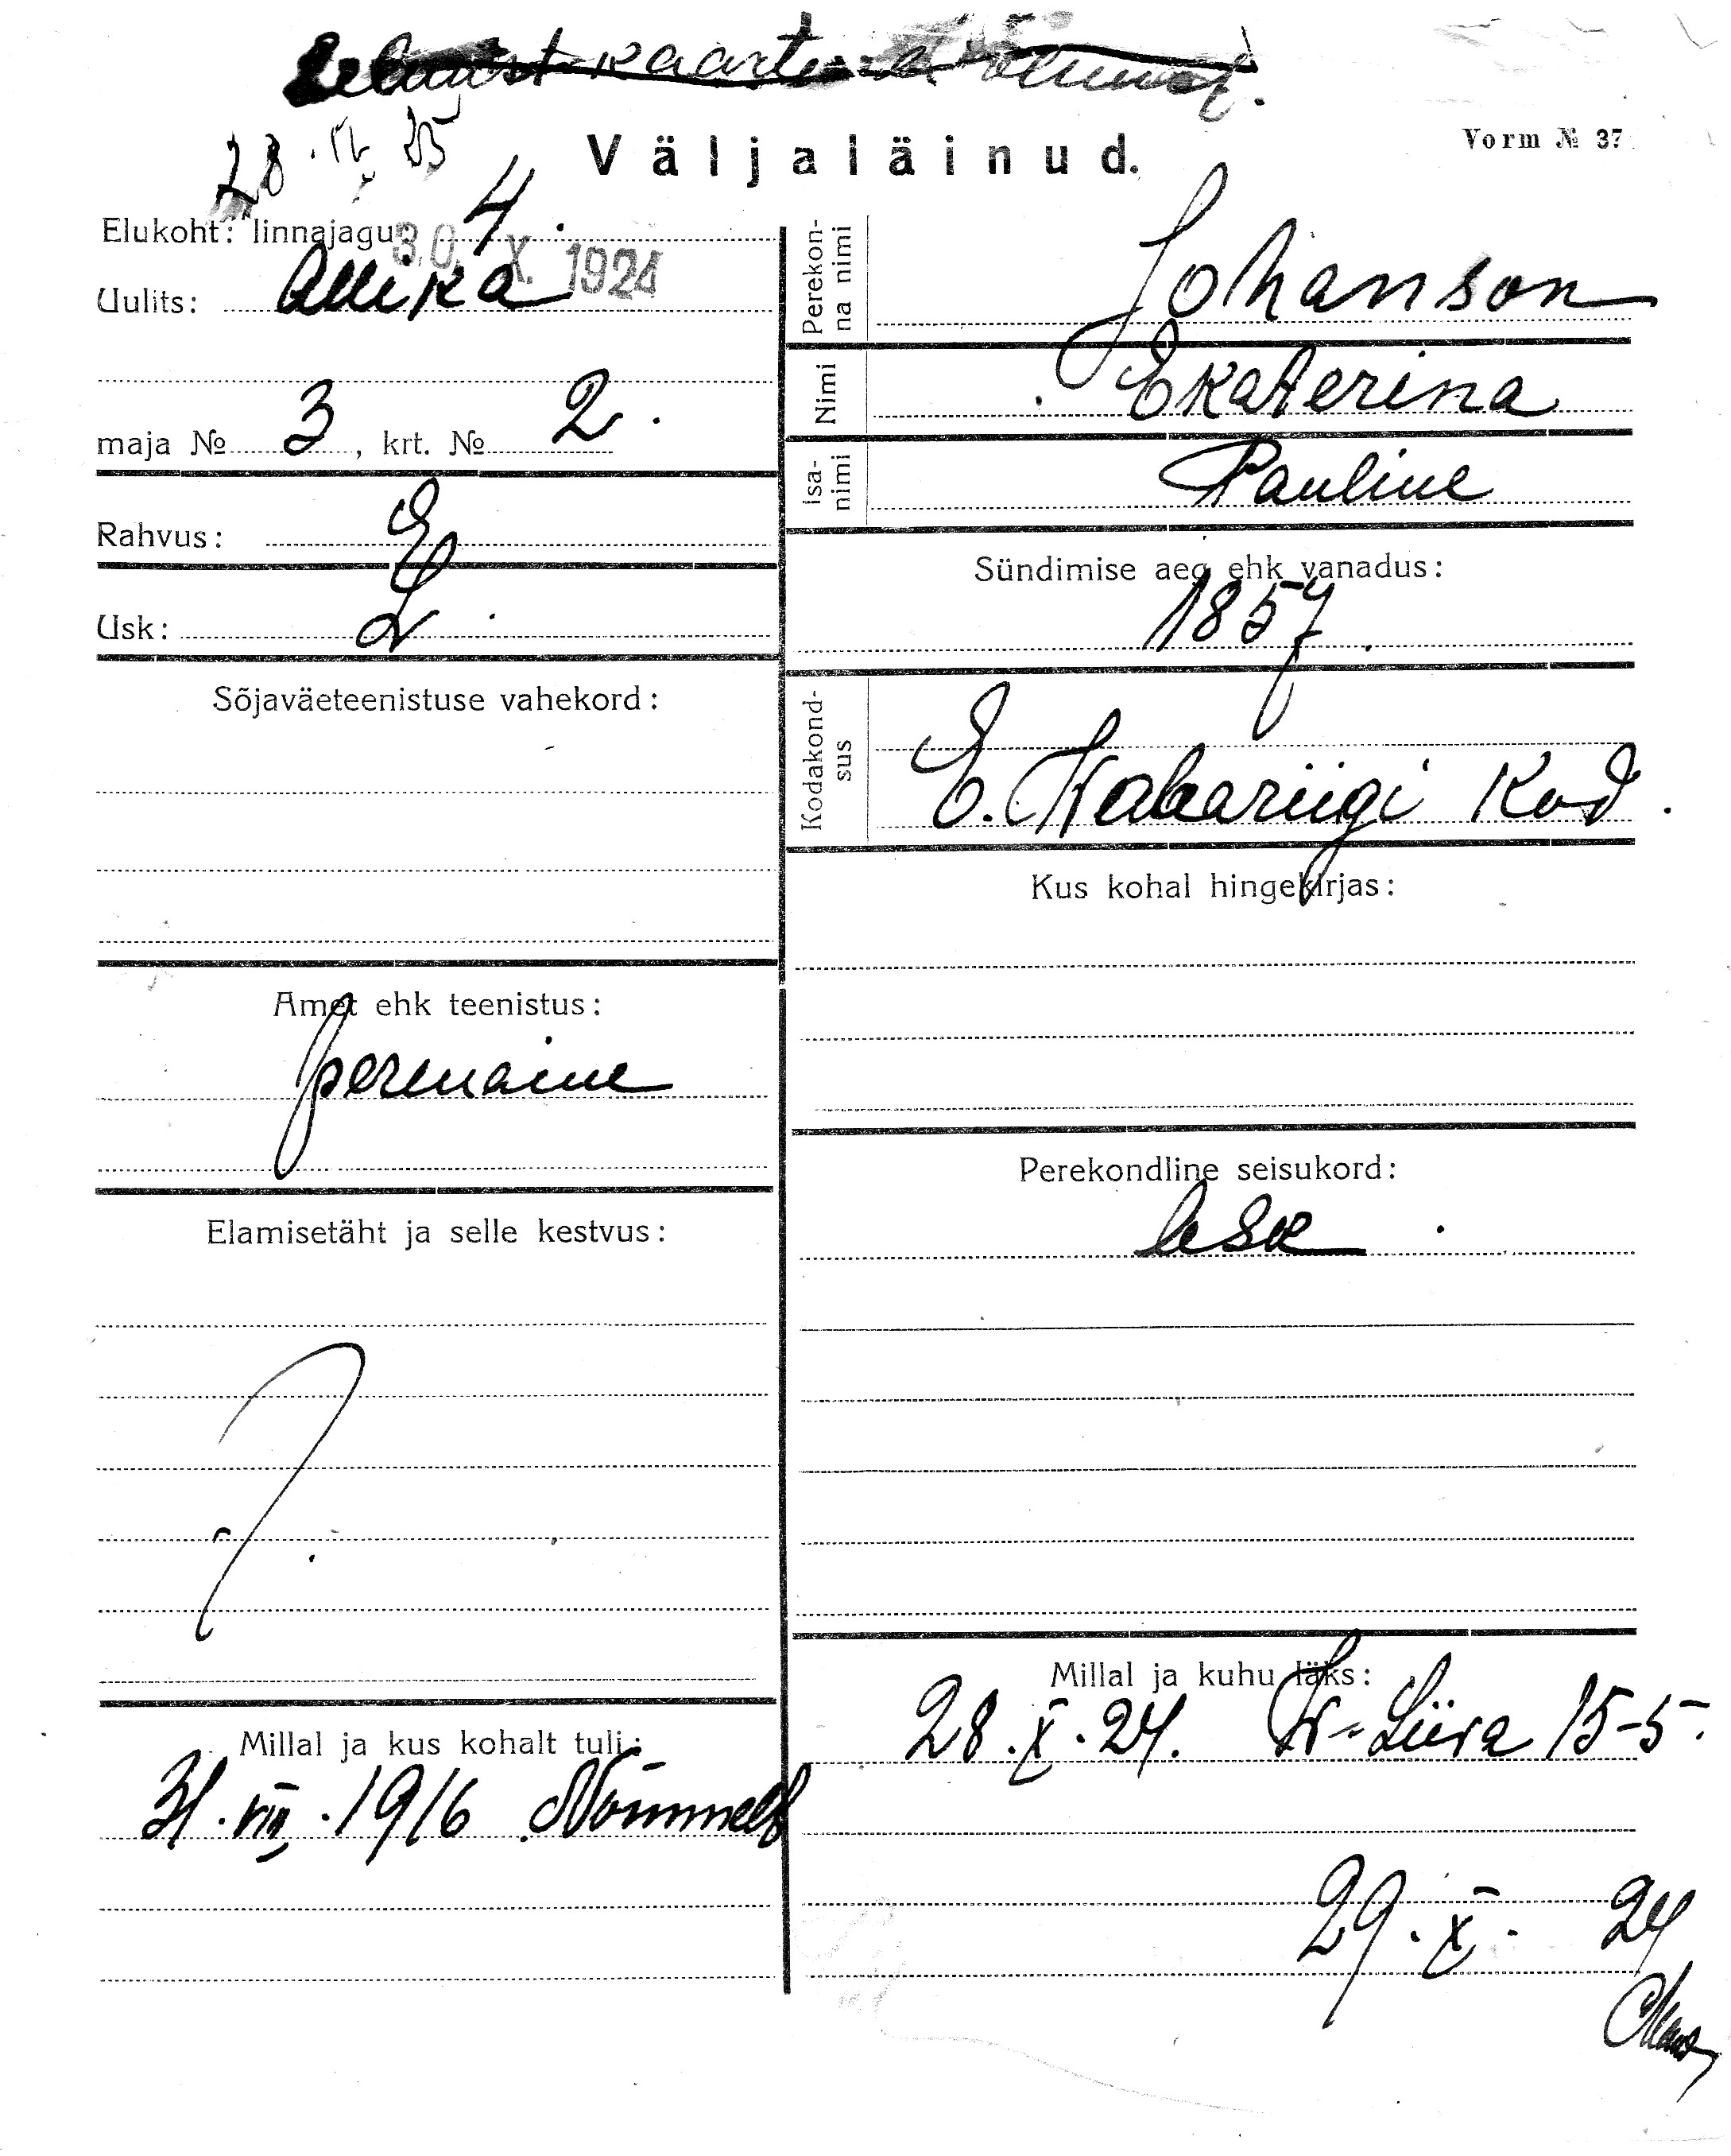 kaarti
28. IV 25
Väljaläinud.
Vorm № 37
Elukoht: linnajagu: 4.
30. X. 1924
Uulits: Allika
maja № 3, krt. № 2.
Rahvus: E
Usk: L.
Sõjaväeteenistuse vahekord:
Amet ehk teenistus:
perenaine
Elamisetäht ja selle kestvus:
Millal ja kus kohalt tuli:
31. VIII. 1916 Nõmmelt
Perekonna nimi
Johanson
Nimi
Ekaterina
Isanimi
Pauline
Sündimise aeg ehk vanadus:
1857.
Kodakondsus
E. Vabariigi Kod.
Kus kohal hingekirjas:
Perekondline seisukord:
lesk.
Millal ja kuhu läks:
28. X. 24. Liiva 15-5.
29. X. 24